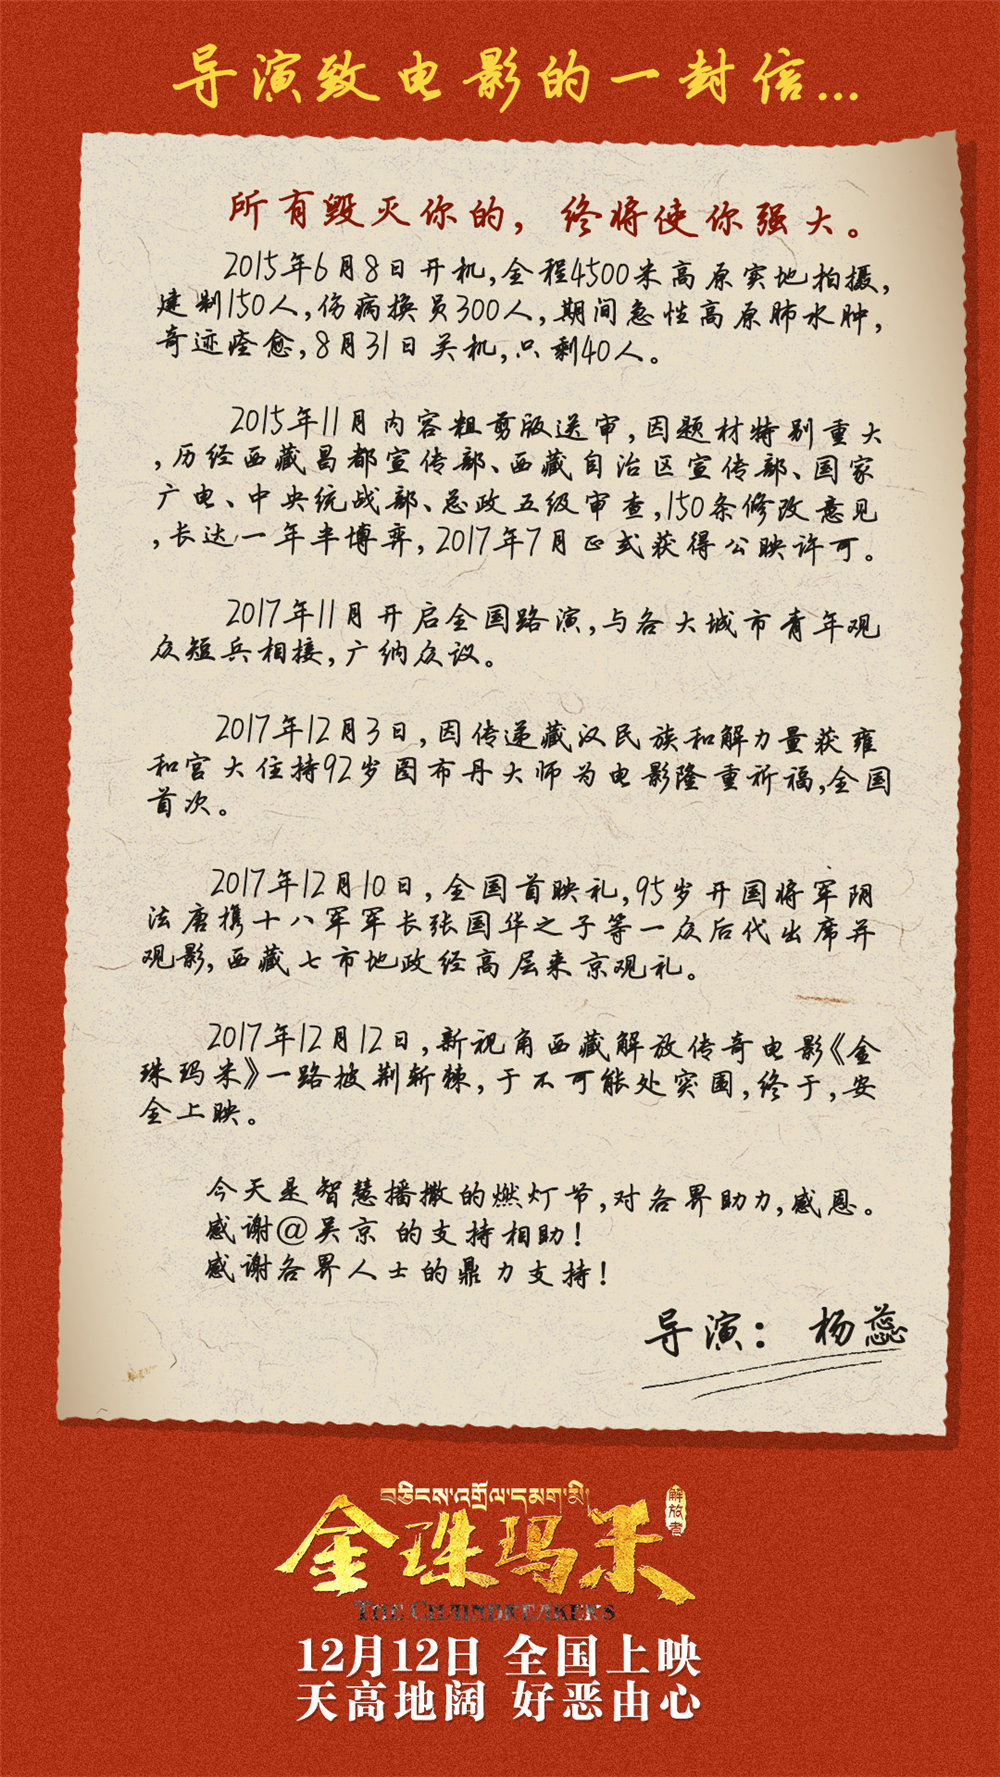 导演致电影的一封信...
所有毁灭你的，终将使你强大。
2015年6月8日开机，全程4500米高原实地拍摄，
建制150人，伤病换员300人，期间急性高原肺水肿，
奇迹痊愈，8月31日关机，只剩40人。
2015年11月内容粗剪版送审，因题材特别重大
，历经西藏昌都宣传部、西藏自治区宣传部、国家
广电、中央统战部、总政五级审查，150条修改意见
，长达一年半博弈，2017年7月正式获得公映许可。
2017年11月开启全国路演，与各大城市青年观
众短兵相接，广纳众议。
2017年12月3日，因传递藏汉民族和解力量获雍
和宫大住持92岁图布丹大师为电影隆重祈福，全国
首次。
2017年12月10日，全国首映礼，95岁开国将军阴
法唐携十八军军长张国华之子等一众后代出席并
观影，西藏七市地政经高层来京观礼。
2017年12月12日，新视角西藏解放传奇电影《金
珠玛米》一路披荆斩棘，于不可能处突围，终于，安
全上映。
今天是智慧播撒的燃灯节，对各界助力，感恩。
感谢@吴京 的支持相助！
感谢各界人士的鼎力支持！
导演：杨蕊
བཅིངས་འགྲོལ་དམག་མི།
金珠玛米 解放者
THE CHAINBREAKERS
12月12日 全国上映
天高地阔 好恶由心